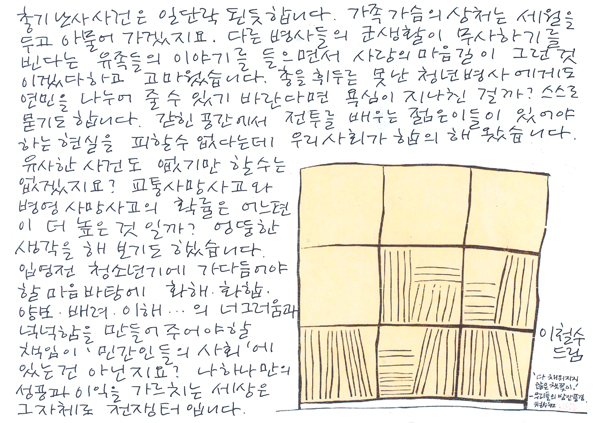 총기 난사 사건은 일단락 된듯합니다. 가족 가슴의 상처는 세월을
두고 아물어 가겠지요. 다른 병사들의 군생활이 무사하기를
빈다는 유족들의 이야기를 들으면서 사람의 마음길이 그런 것
이겠다하고 고마웠습니다. 총을 휘두른 못난 청년병사에게도
연민을 나누어 줄 수 있기 바란다면 욕심이 지나친 걸까? 스스로
묻기도 합니다. 갇힌 공간에서 전투를 배우는 젊은이들이 있어야
하는 현실을 피할수 없다는데 우리사회가 합의 해 왔습니다.
유사한 사건도 없기만 할수는
없겠지요? 교통사망사고와
병영 사망사고의 확률은 어느편
이 더 높은 것 일까? 엉뚱한
생각을 해 보기도 했습니다.
입영전 청소년기에 가다듬어야
할 마음바탕에 화해·화합·
양보·배려·이해...의 너그러움과
넉넉함을 만들어주어야할
책임이 '민간인들의 사회'에
있는건 아닌지요? 나 하나만의
성공과 이익을 가르치는 세상은
그 자체로 전쟁터입니다.
이철수
드림
'다 채워지지
않은 책꽂이'